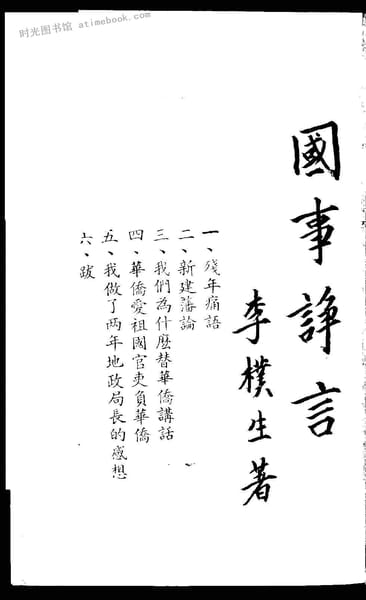 时光图书馆 www.atimebook.com
國事諍言
李樸生著
一、殘年痛語
二、新建藩論
三、我們為什麼替華僑講話
四、華僑愛祖國官吏負華僑
五、我做了两年地政局長的感想
六、跋